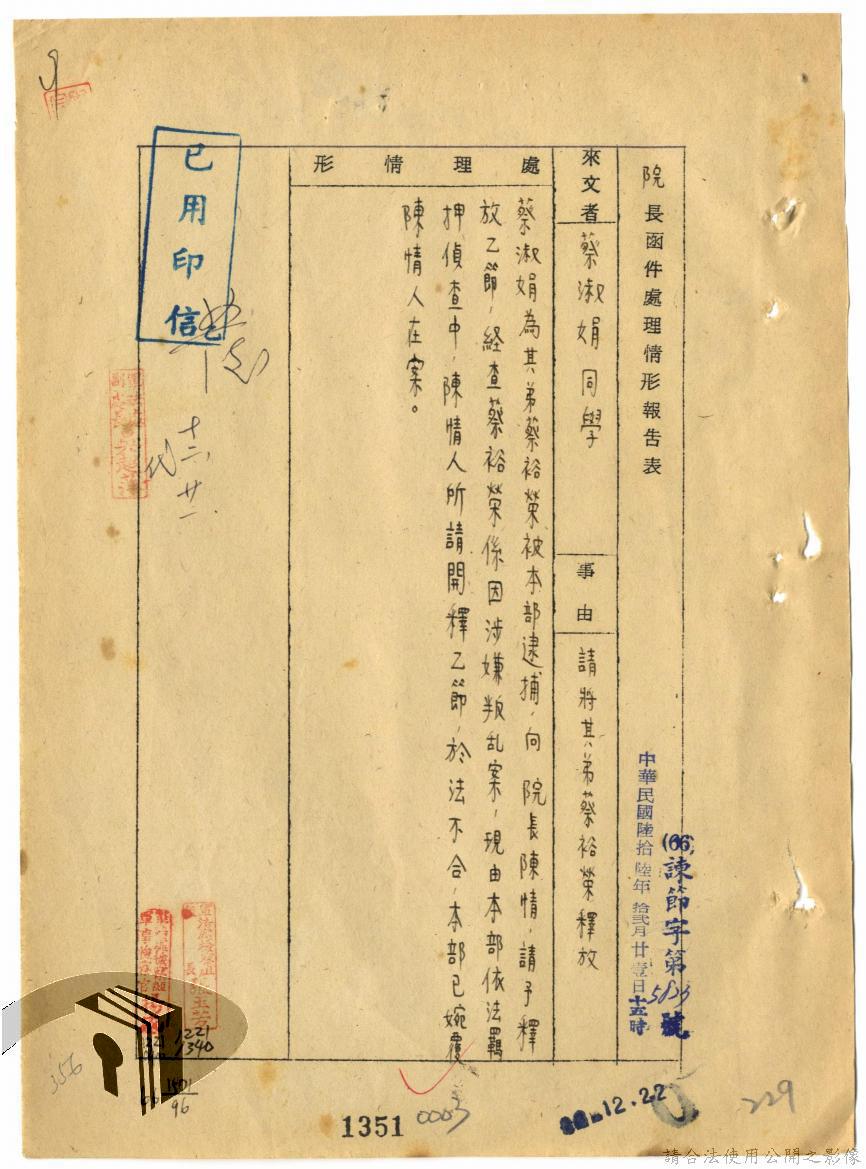 院長函件處理情形報告表
(66)諫節字第5823號
中華民國陸拾陸年拾弍月廿壹日十五時
來文者
蔡淑娟同學
事由
請將其弟蔡裕榮釋放
處理情形
蔡淑娟為其弟蔡裕榮被本部逮捕，向　院長陳情，請予釋
放乙節，経查蔡裕榮係因涉嫌叛乱案，現由本部依法羈
押偵查中，陳情人所請開釋乙節，於法不合，本部已婉覆
陳情人在案。
已用印信
十二、廿一
代
1221
1340
1501
96
356
1351
0003
12.22
229
請合法使用公開之影像